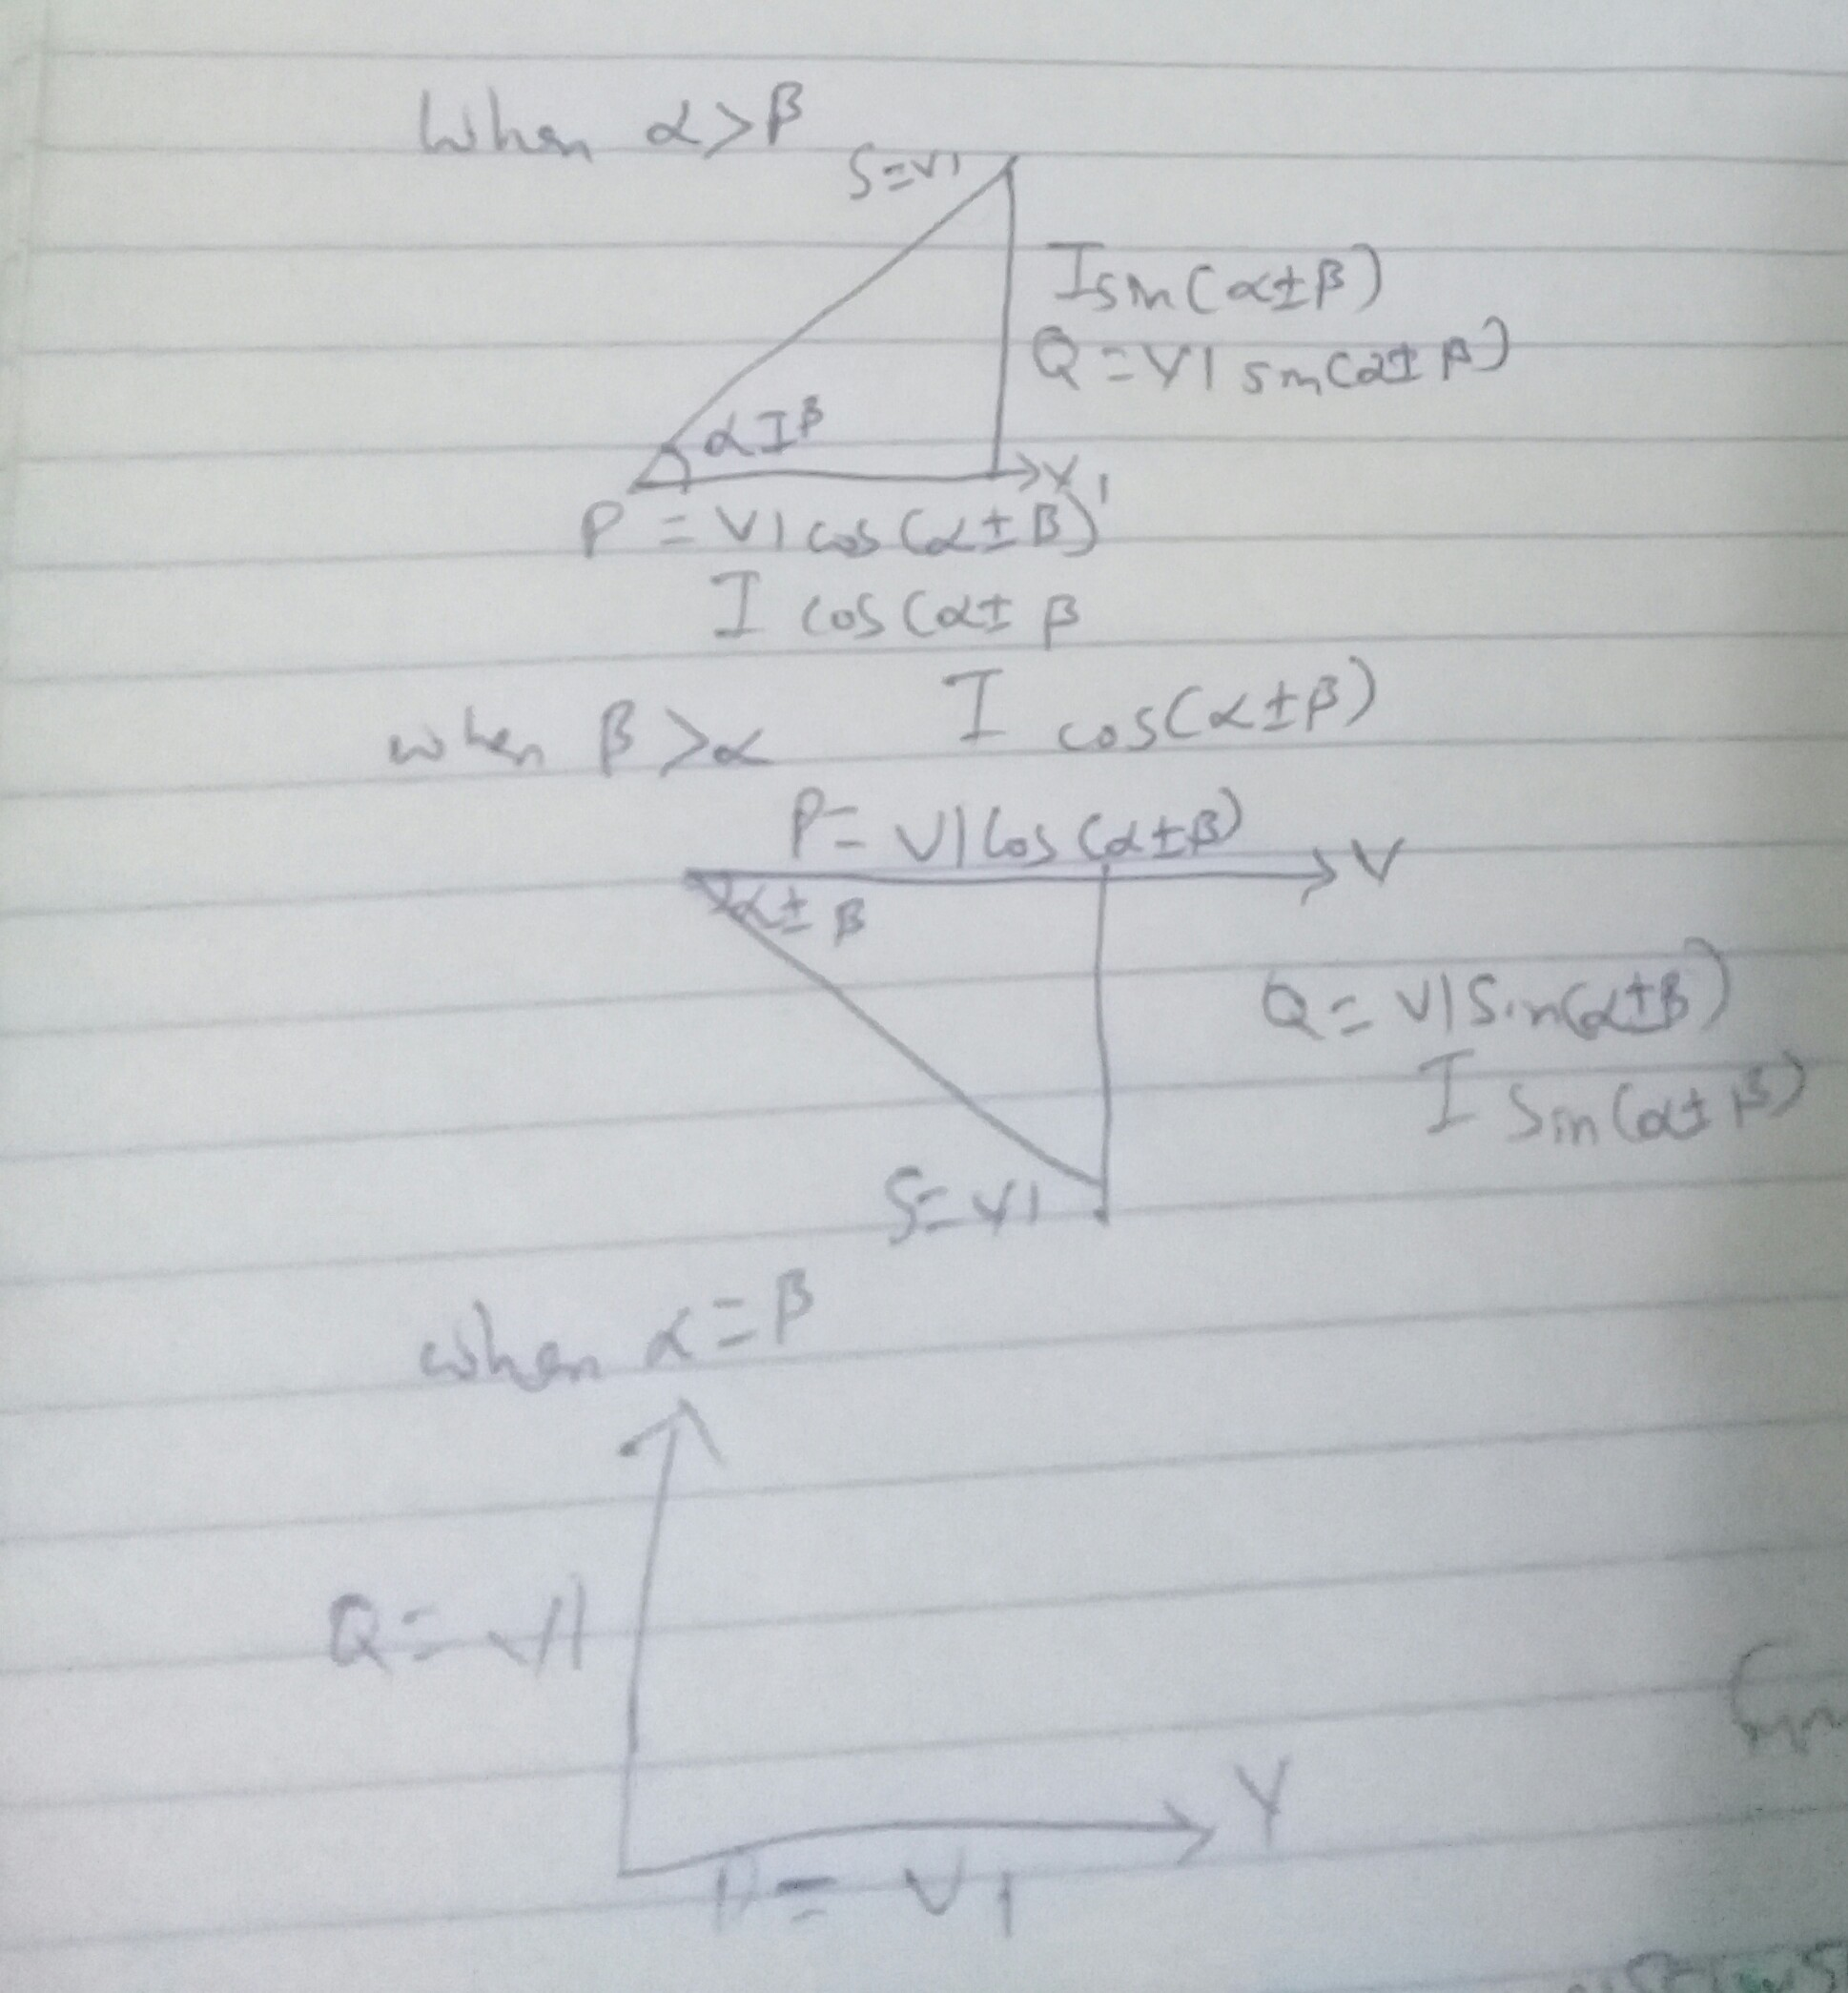 When α>β
S=VI
I sin(α±β)
Q=VI sin(α±β)
α I β
V
P = VI cos(α±β)
I cos(α± β
when β>α I cos(α±β)
P= VI cos(α±β)
V
α± β
Q= VI Sin(α±β)
I Sin(α±β)
S=VI
when α=β
Q= VI
V
P= VI